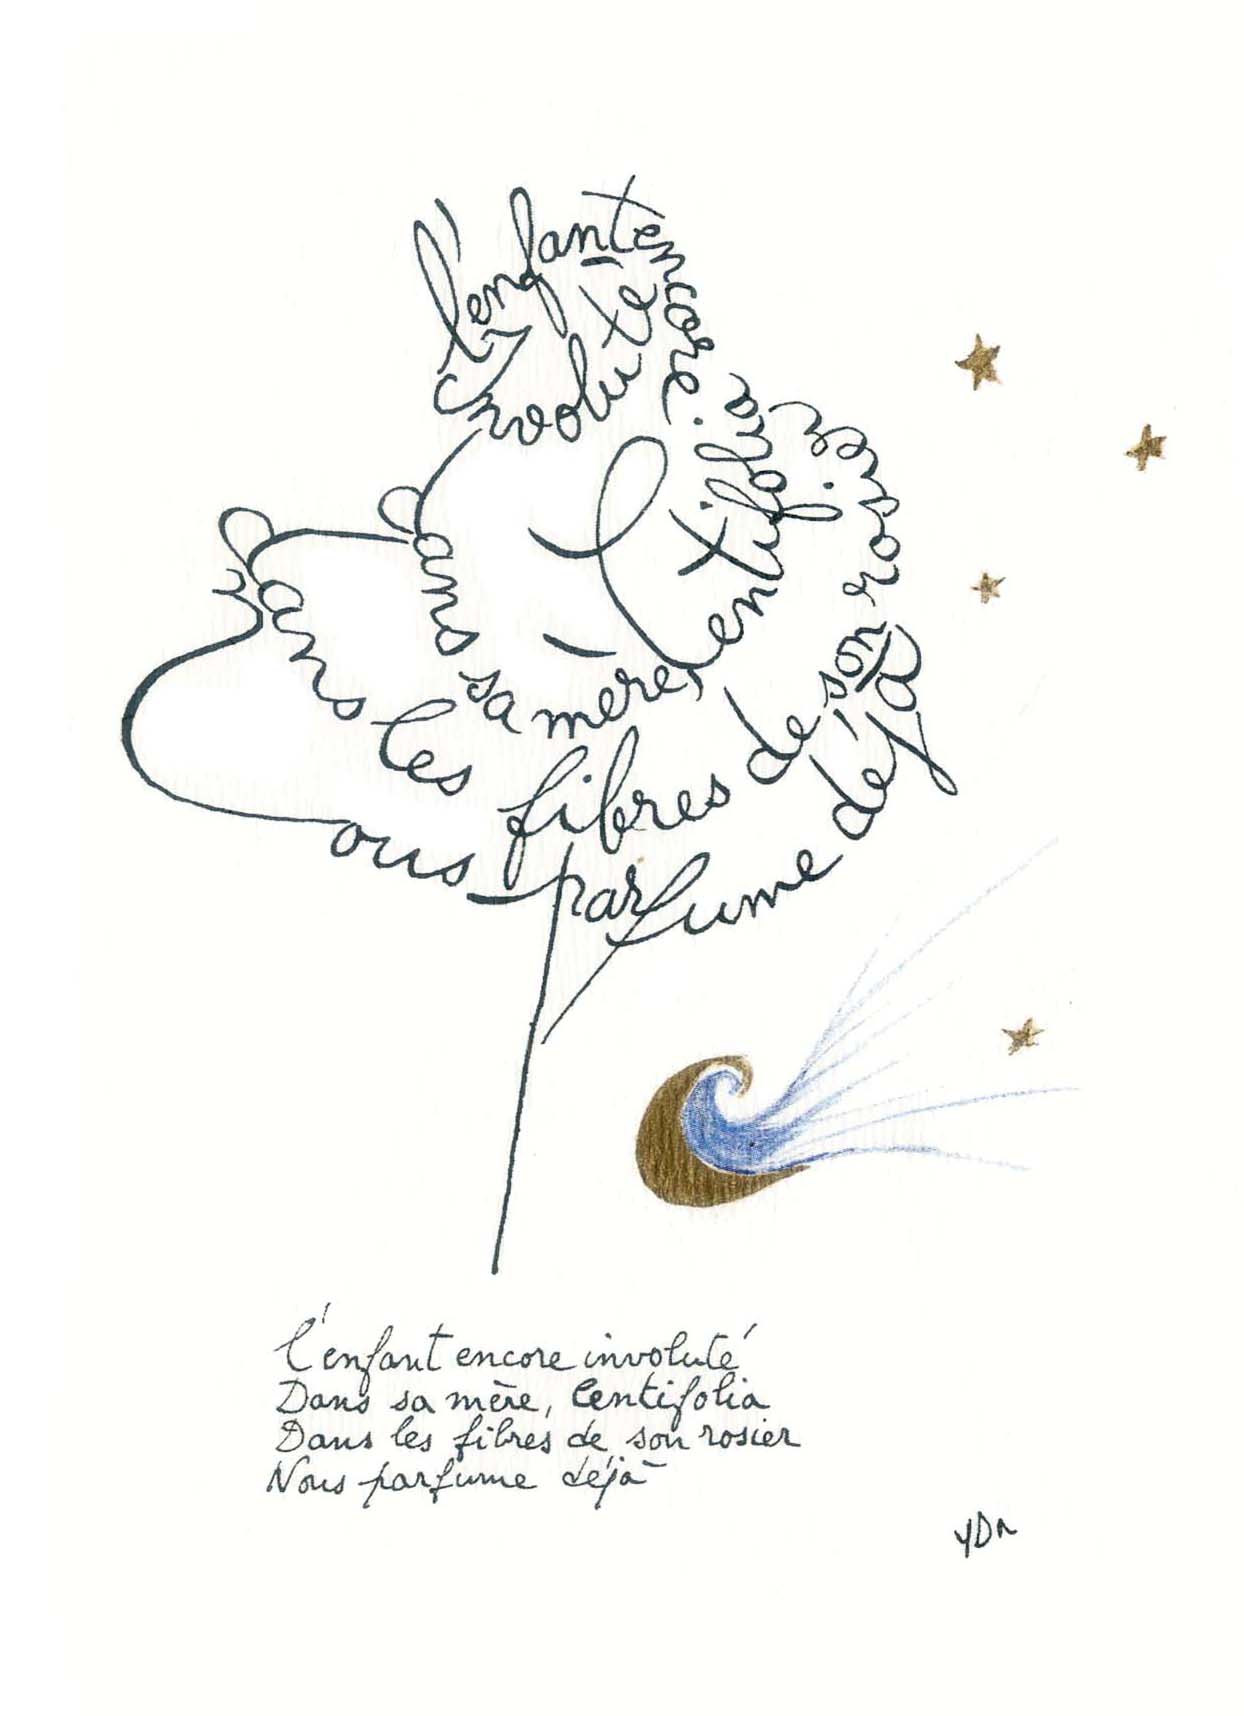 l'enfant encore
involuté
Dans sa mère, Centifolia
Dans les fibres de son rosier
Nous parfume déjà
l'enfant encore involuté
Dans sa mère, Centifolia
Dans les fibres de son rosier
Nous parfume déjà
YDn